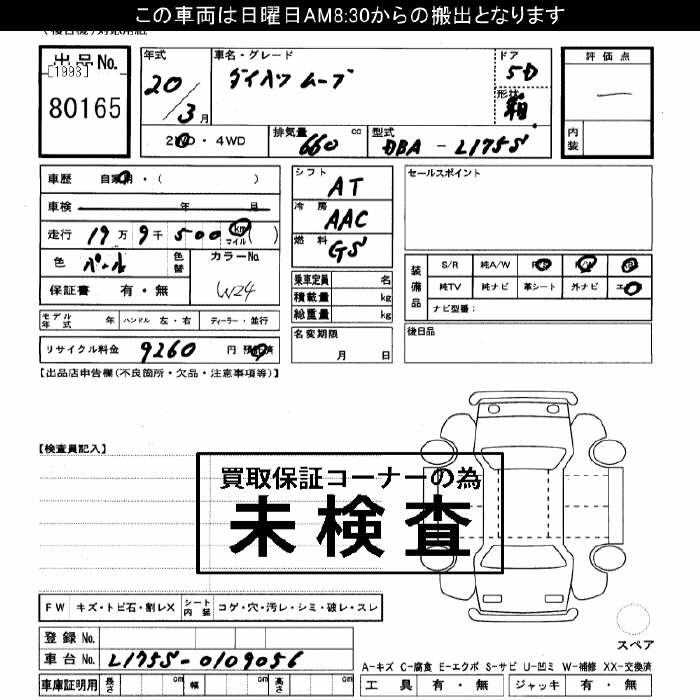 この車両は日曜日AM8:30からの搬出となります
出品No.
[1993]
80165
年式
20/3月
車名・グレード
ダイハツ ムーブ
ドア
5D
形状
箱
評価点
―
内装
2WD・4WD
排気量 660 cc
型式 DBA - L175S
車歴 自家用・( )
車検 年 月
走行 19万9千500 km マイル ( )
色 パール
色替
カラーNo. W24
保証書 有・無
モデル年式 年
ハンドル 左・右
ディーラー・並行
リサイクル料金 9260 円 預託済
シフト AT
冷房 AAC
燃料 GS
乗車定員 名
積載量 kg
総重量 kg
名変期限
月 日
セールスポイント
装備品
S/R 純A/W P/S P/W
純TV 純ナビ 革シート 外ナビ
ナビ型番:
後日品
【出品店申告欄(不良箇所・欠品・注意事項等)】
【検査員記入】
買取保証コーナーの為
未検査
FW キズ・トビ石・割レX シート内装 コゲ・穴・汚レ・シミ・破レ・スレ
登録No.
車台No. L175S-0109056
車庫証明用 長さ cm 幅 cm 高さ cm
スペア
A-キズ C-腐食 E-エクボ S-サビ U-凹ミ W-補修 XX-交換済
工具 有・無 ジャッキ 有・無